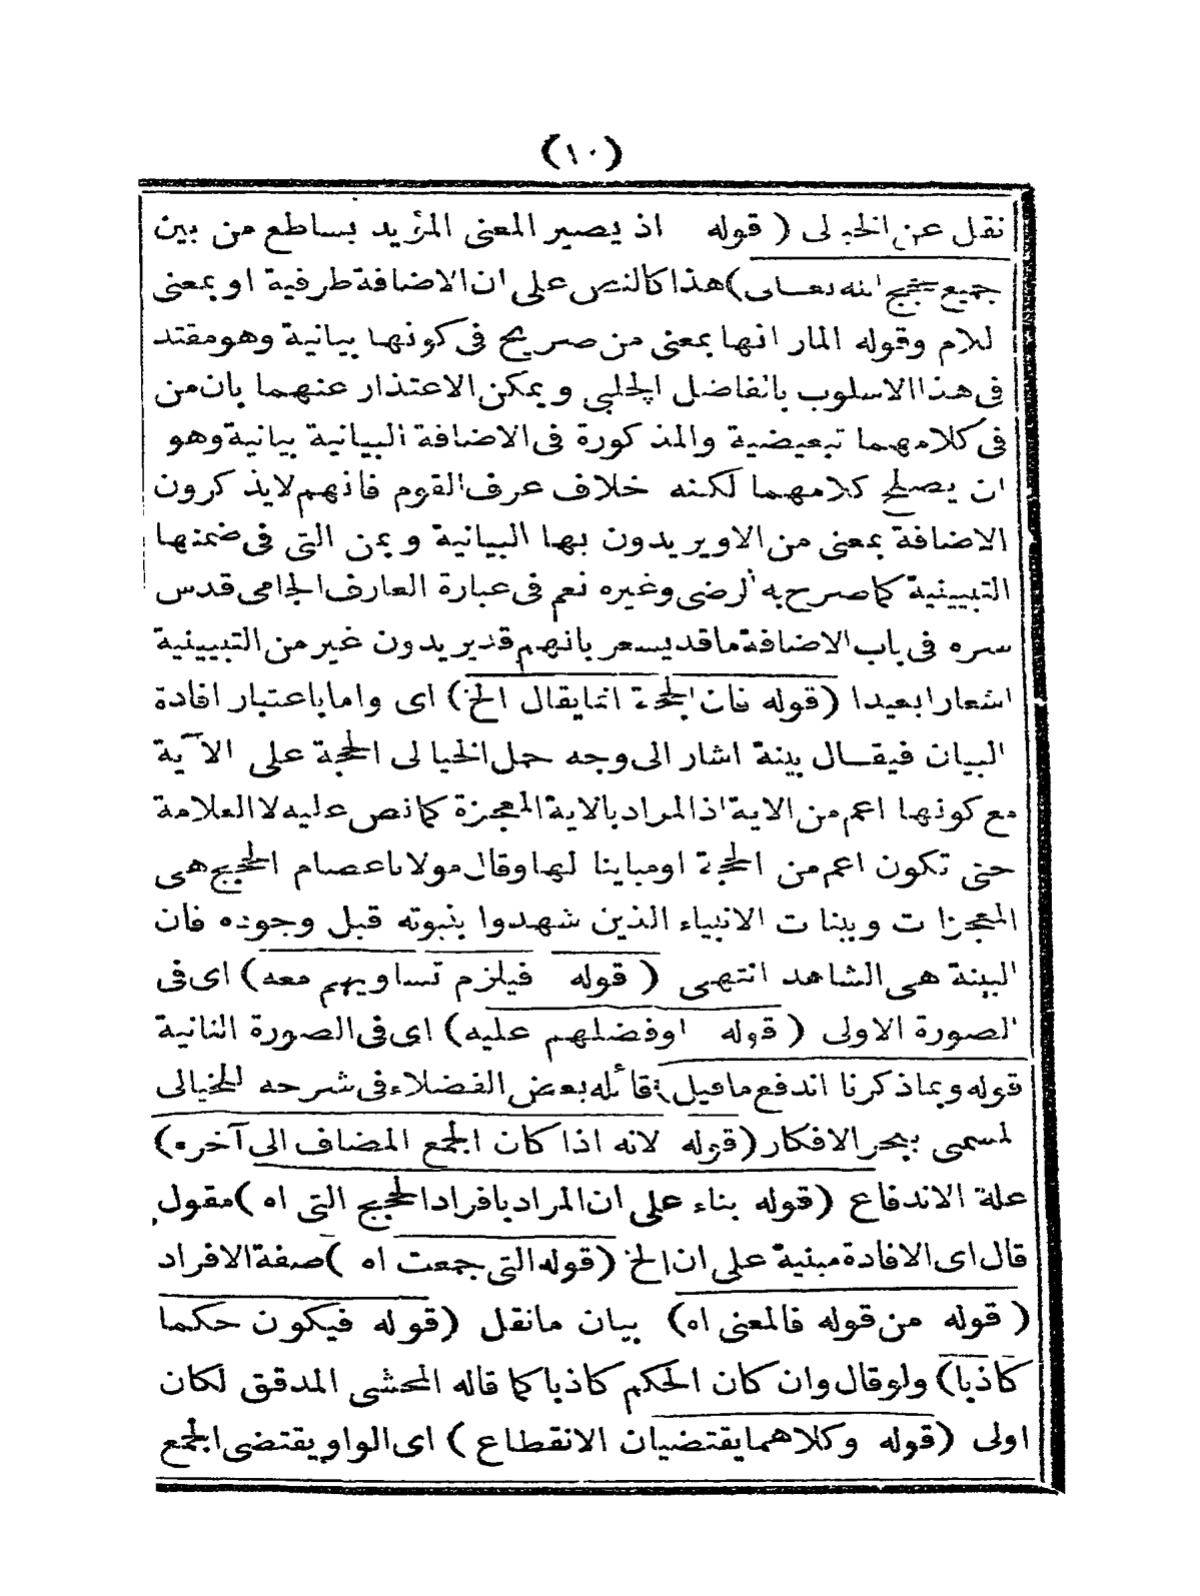 (١٠)
نقل عن الخيالى ( قوله اذ يصير المعنى المؤيد بساطع من بين
جميع حجج الله تعالى) هذا كالنص على ان الاضافة ظرفية او بمعنى
للام وقوله المار انها بمعنى من صريح فى كونها بيانية وهو مقتد
فى هذا الاسلوب بالفاضل الچلبي ويمكن الاعتذار عنهما بان من
فى كلامهما تبعيضية والمذكورة فى الاضافة البيانية بيانية وهو
ان يصلح كلامهما لكنه خلاف عرف القوم فانهم لايذكرون
الاضافة بمعنى من الا ويريدون بها البيانية وبمن التى فى ضمنها
التبيينية كما صرح به الرضى وغيره نعم فى عبارة العارف الجامى قدس
سره فى باب الاضافة ما قد يسعر بانهم قد يريدون غير من التبيينية
اشعارا بعيدا (قوله فان الحجة انما يقال الخ) اى واما باعتبار افادة
البيان فيقال بينة اشار الى وجه حمل الخيالى الحجة على الآية
مع كونها اعم من الاية اذ المراد بالاية المعجزة كما نص عليه لا العلامة
حتى تكون اعم من الحجة او مباينا لها وقال مولانا عصام الحجج هى
المعجزات وبينات الانبياء الذين شهدوا بنبوته قبل وجوده فان
البينة هى الشاهد انتهى ( قوله فيلزم تساويهم معه) اى فى
الصورة الاولى ( قوله اوفضلهم عليه) اى فى الصورة الثانية
قوله وبما ذكرنا اندفع ماقيل) قائله بعض الفضلاء فى شرحه للخيالى
لمسمى ببحر الافكار (قوله لانه اذا كان الجمع المضاف الى آخره)
علة الاندفاع (قوله بناء على ان المراد بافراد الحجج التى اه )مقول
قال اى الافادة مبنية على ان الخ (قوله التى جمعت اه )صفة الافراد
( قوله من قوله فالمعنى اه) بيان مانقل (قوله فيكون حكما
كاذبا) ولو قال وان كان الحكم كاذبا كما قاله المحشى المدقق لكان
اولى (قوله وكلاهما يقتضيان الانقطاع ) اى الواو يقتضى الجمع